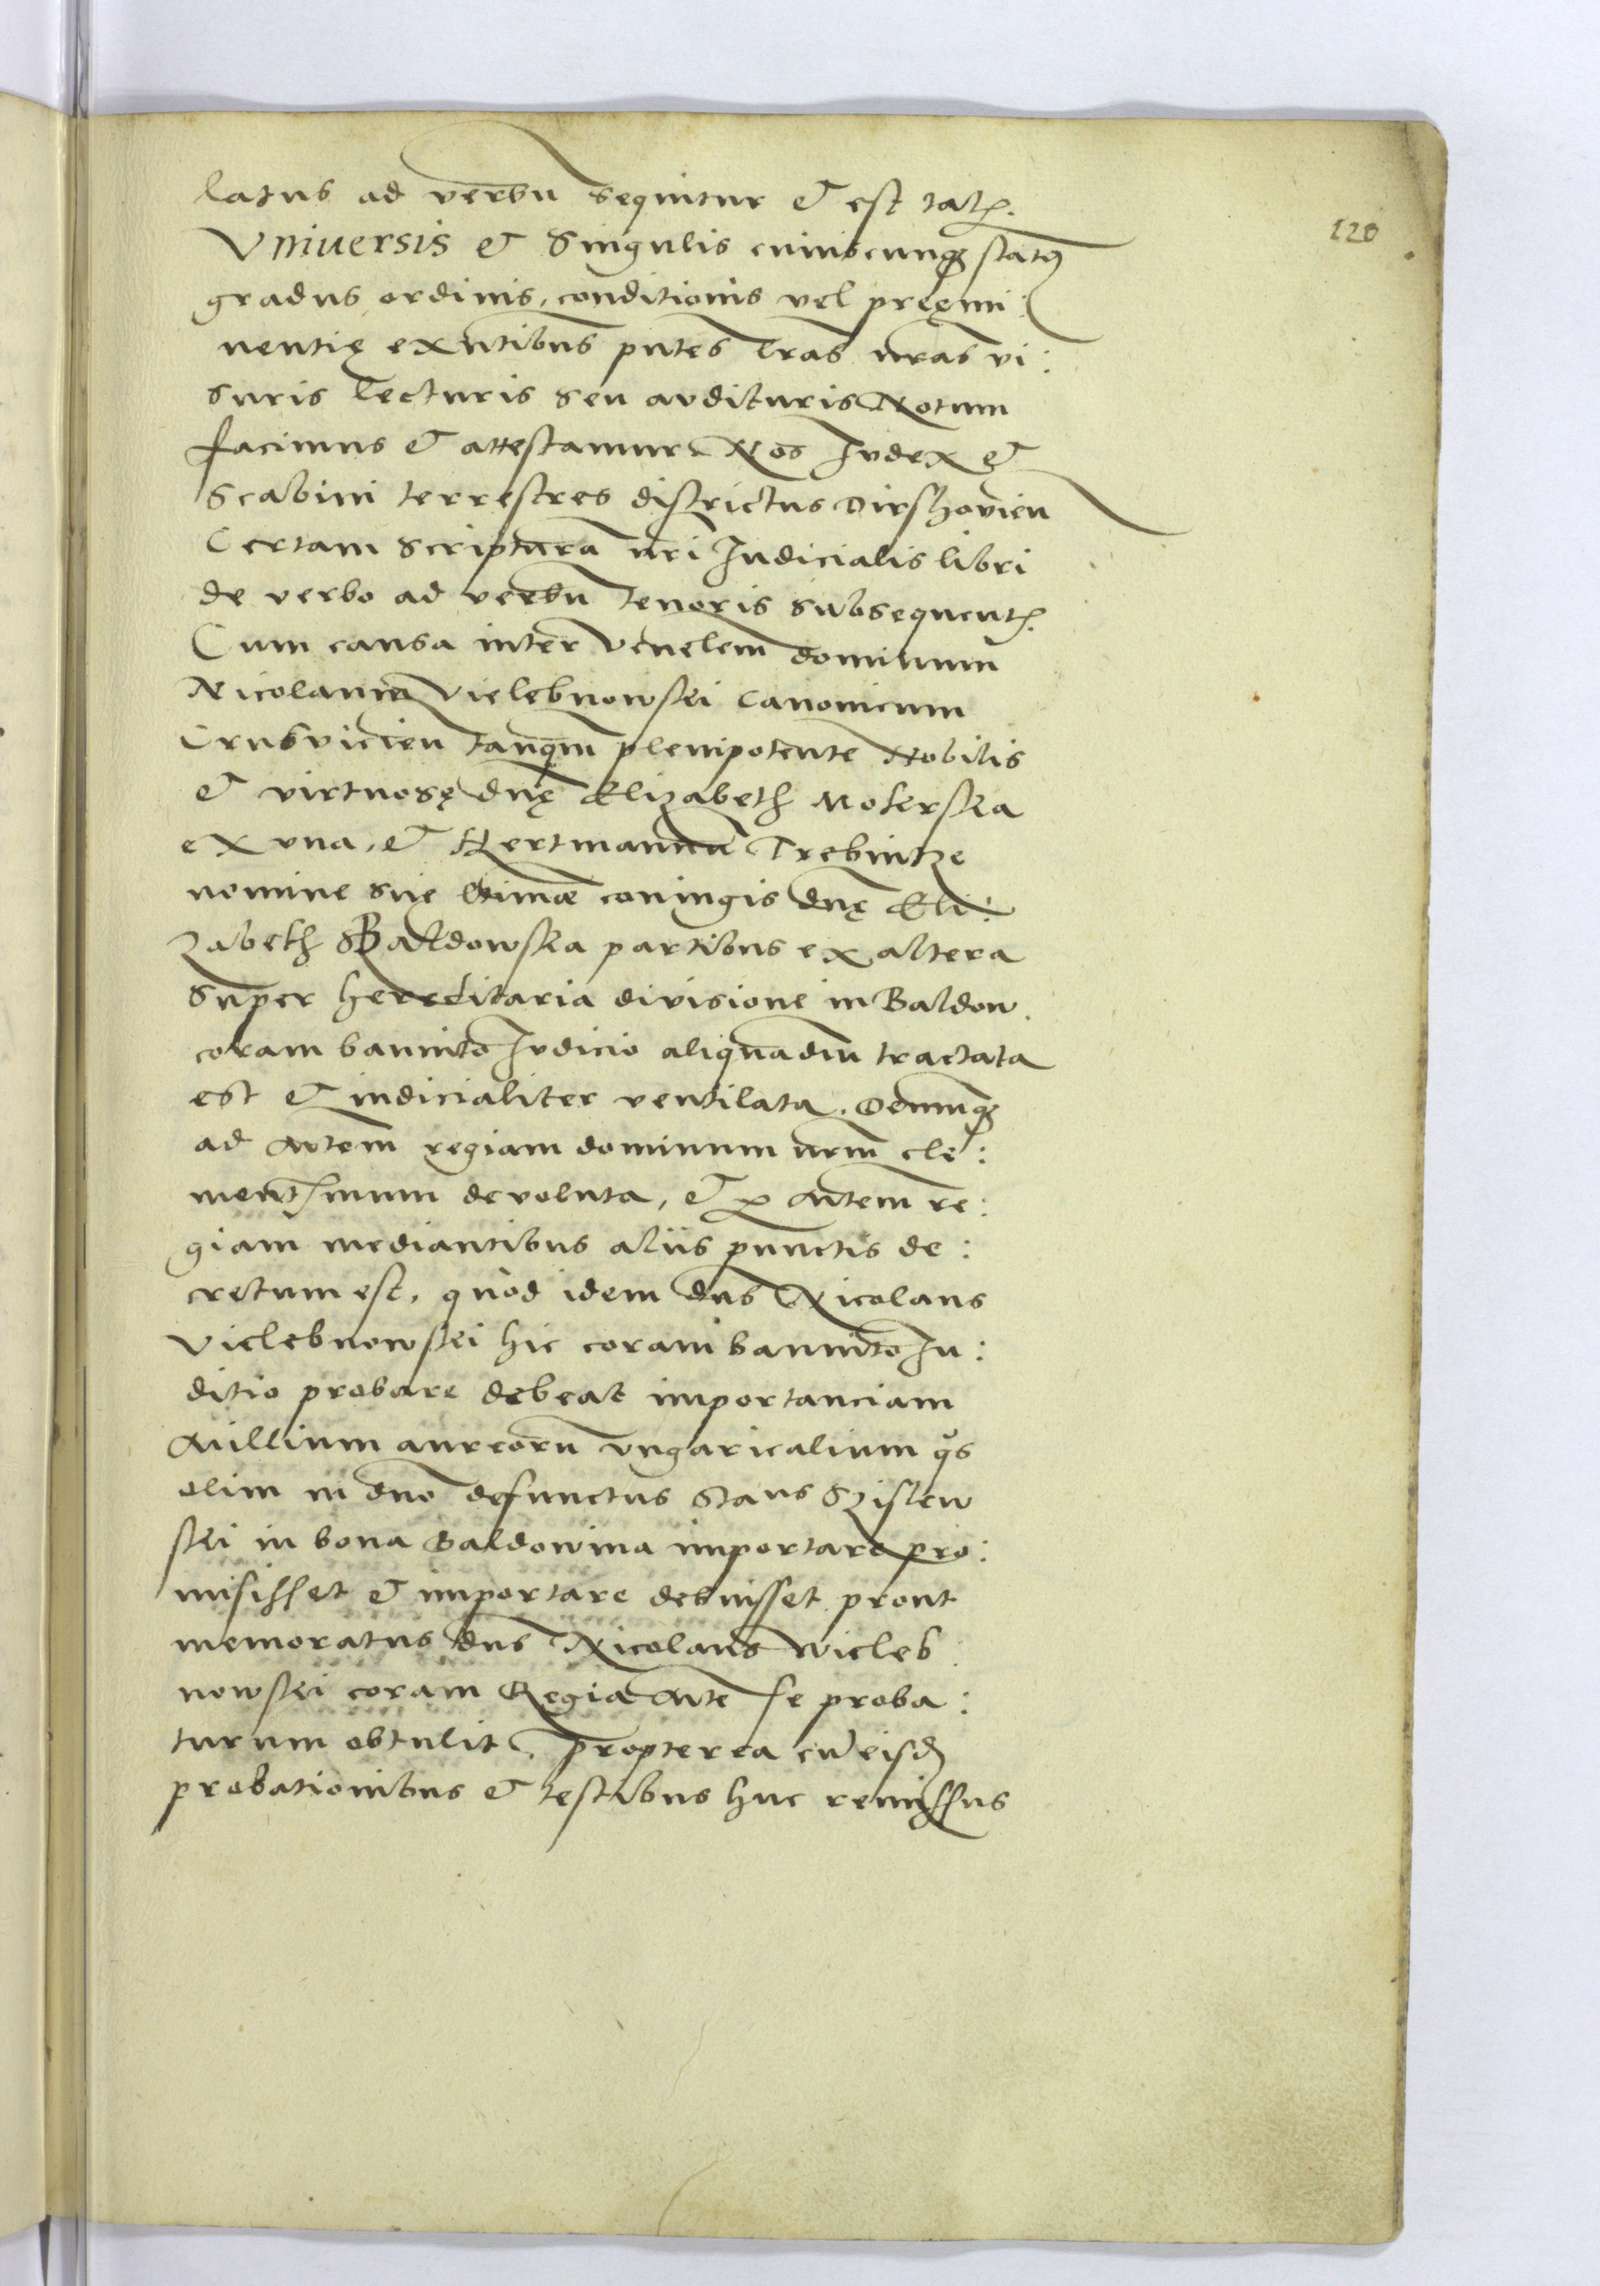 120
latus ad verbū sequitur & est talꝭ.
Vniuersis & Singulis cuiuscunqȝ statꝰ
gradus ordinis, conditionis vel preęmi:
nentię exn̄tibus pn̄tes l̄ras nr̄as vi:
suris lecturis seu audituris Notum
facimus & attestamur Nos Iudex &
Scabini terrestres districtus Dirshouien̄
Certam scripturā nr̄i Iudicialis libri
de verbo ad verbū tenoris subsequentꝭ.
Cum causa inter Venelem̄ dominum
Nicolaum Vielebnowskei Canonicum
Crusvicien̄ tanq̄m plenipotentē Nobilis
& virtuosę dn̄ę Elizabeth Mokerskea
ex vna, & Hertmannū Trebnitze
nomine suę coniugis dn̄ę Eli:
zabeth Baldowskea partibus ex altera
Super hereditaria divisione in Baldow.
coram bannito Iudicio aliquādiu tractata
est & iudicialiter ventilata. Demumqȝ
ad Mtem̄ regiam dominum nrm̄ cle:
mentꝭmum devoluta, & ꝑ Mtem̄ re:
giam mediantibus aliis punctis de:
cretum est, quod idem dn̄s Nicolaus
Vielebnowskei hic coram bannito Iu:
ditio probare debeat importanciam
Millium aureorū vngaricalium qͦs
olim in dn̄o defunctus Staus Szislew
skei in bona Baldowina importare pro:
misisset & importare debuisset prout
memoratus dn̄s Nicolaus Wieleb:
nowskei coram Regia Mte se proba:
turum obtulit, Propterea cū eisdꝫ
probationibus & testibus huc remissus